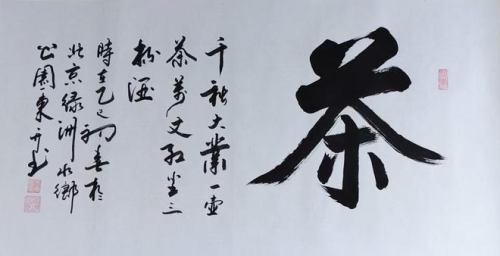 茶
千秋大業一壺
茶萬丈红尘三
杯酒
時在乙巳初春於
北京綠洲水鄉
公園東